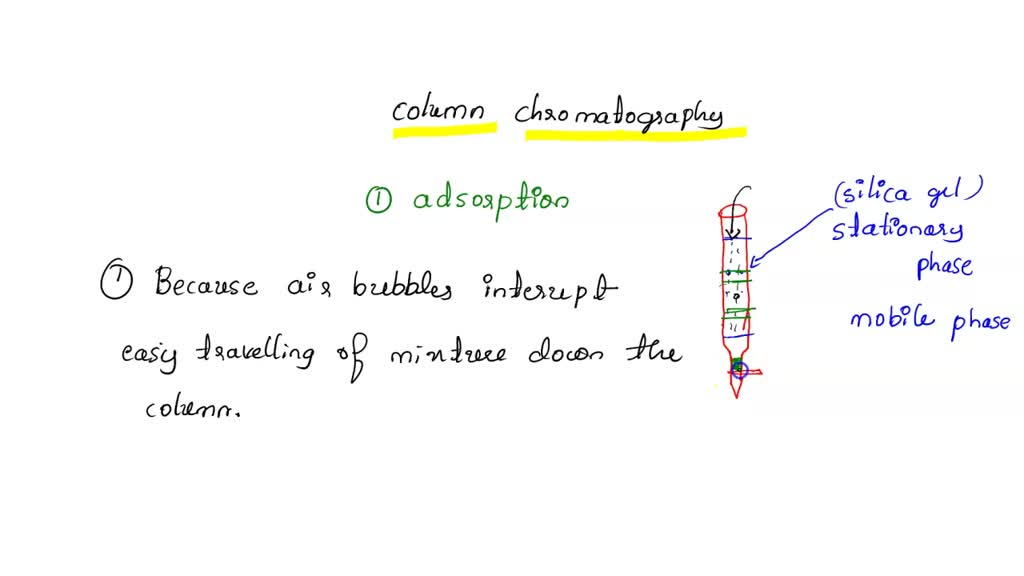 column chromatography
① adsorption
(silica gel)
stationary
phase
mobile phase
① Because air bubbles interrupt
easy travelling of mixture down the
column.